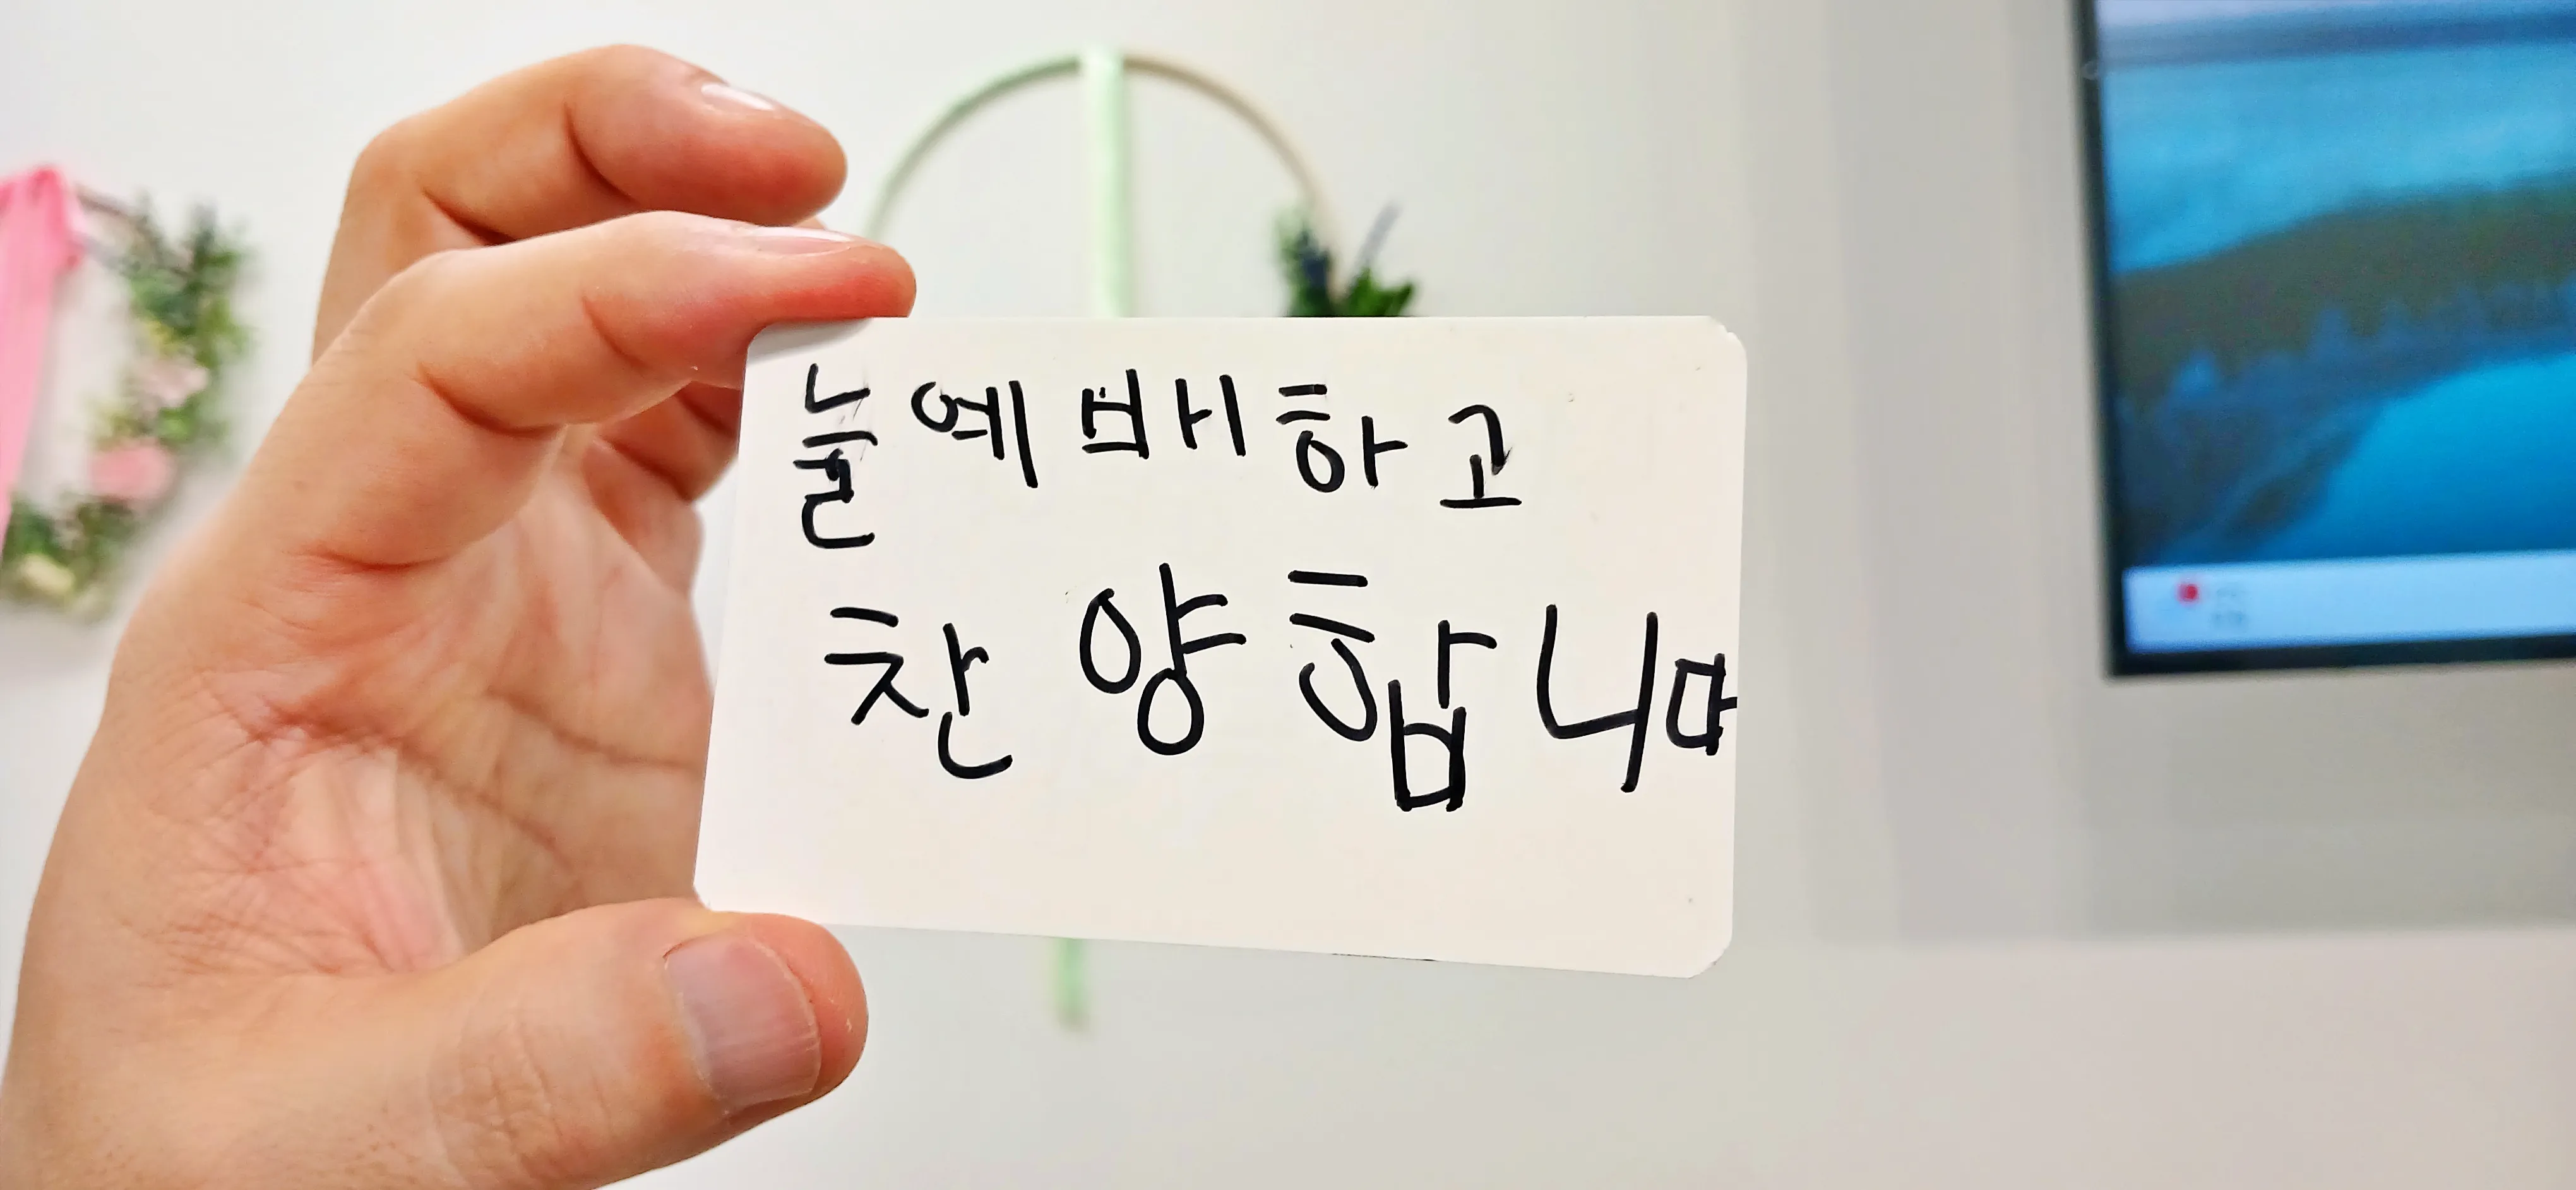 늘 예배하고
찬양합니다